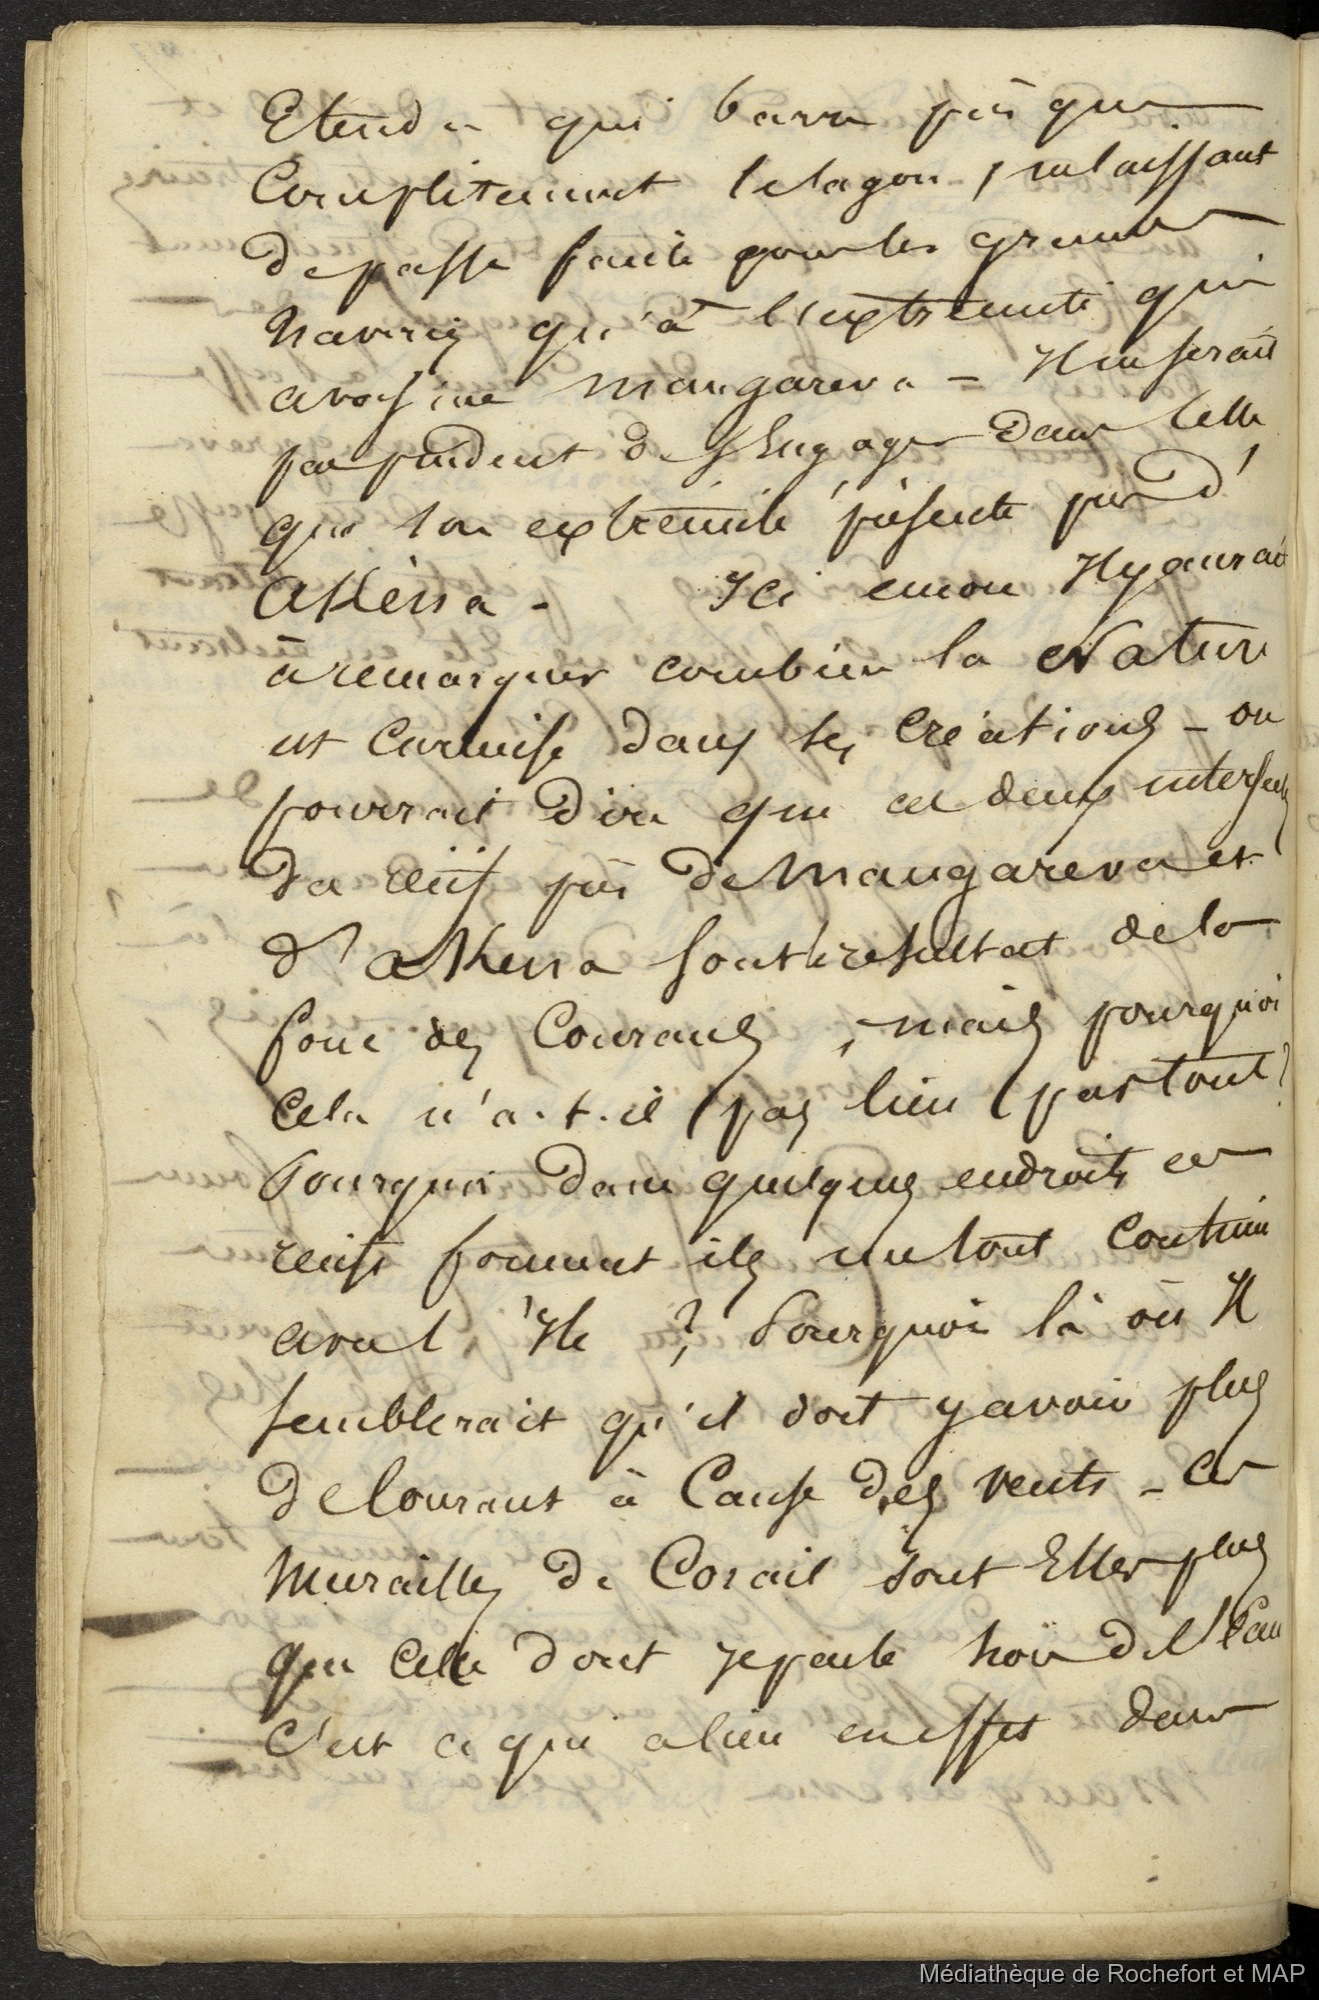 Etendu qui barre presque
Complètement le lagon, ne laissant
de passe facile pour les grands
navires qu'à l'extremité qui
avoisine Mangareva - Il ne serait
pas prudent de s'engager dans celle
que son extrémité présente près d'
aKéna - Ici encore Il y aurait
à remarquer combien la Nature
est Curieuse dans ses Créations - on
pourrait dire que ces deux
du récif près de Mangareva et
d'aKena sont le résultat de la
force des Courants, mais pourquoi
Cela n'a-t-il pas lieu partout?
Pourquoi dans quelques endroits ces
récifs forment ils un tout Continu
avec l'Ile ? Pourquoi là où Il
semblerait qu'il doit y avoir plus
de Courant à Cause des vents - Ces
Murailles de Corail sont Elles plus
que Celle dont je parle hors de l'Eau
C'est ce qui a lieu en effet dans
Médiathèque de Rochefort et MAP